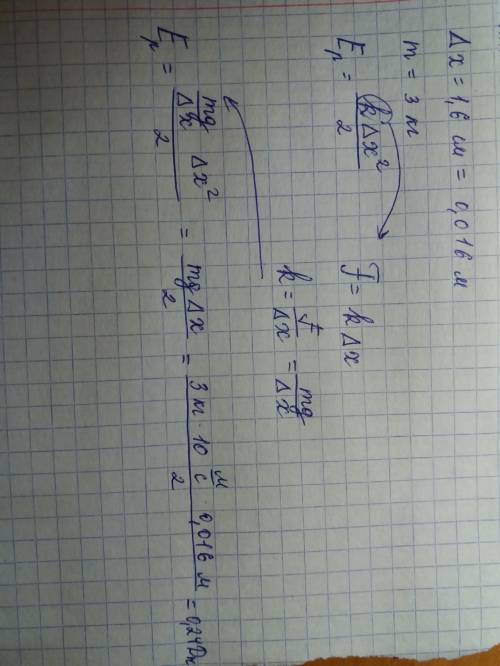 Δx = 1,6 см = 0,016 м
m = 3 кг
E_p = kΔx²/2
F = kΔx
k = F/Δx = mg/Δx
E_p = (mg/Δx Δx²)/2 = mgΔx/2 = (3 кг · 10 м/с · 0,016 м)/2 = 0,24Дж